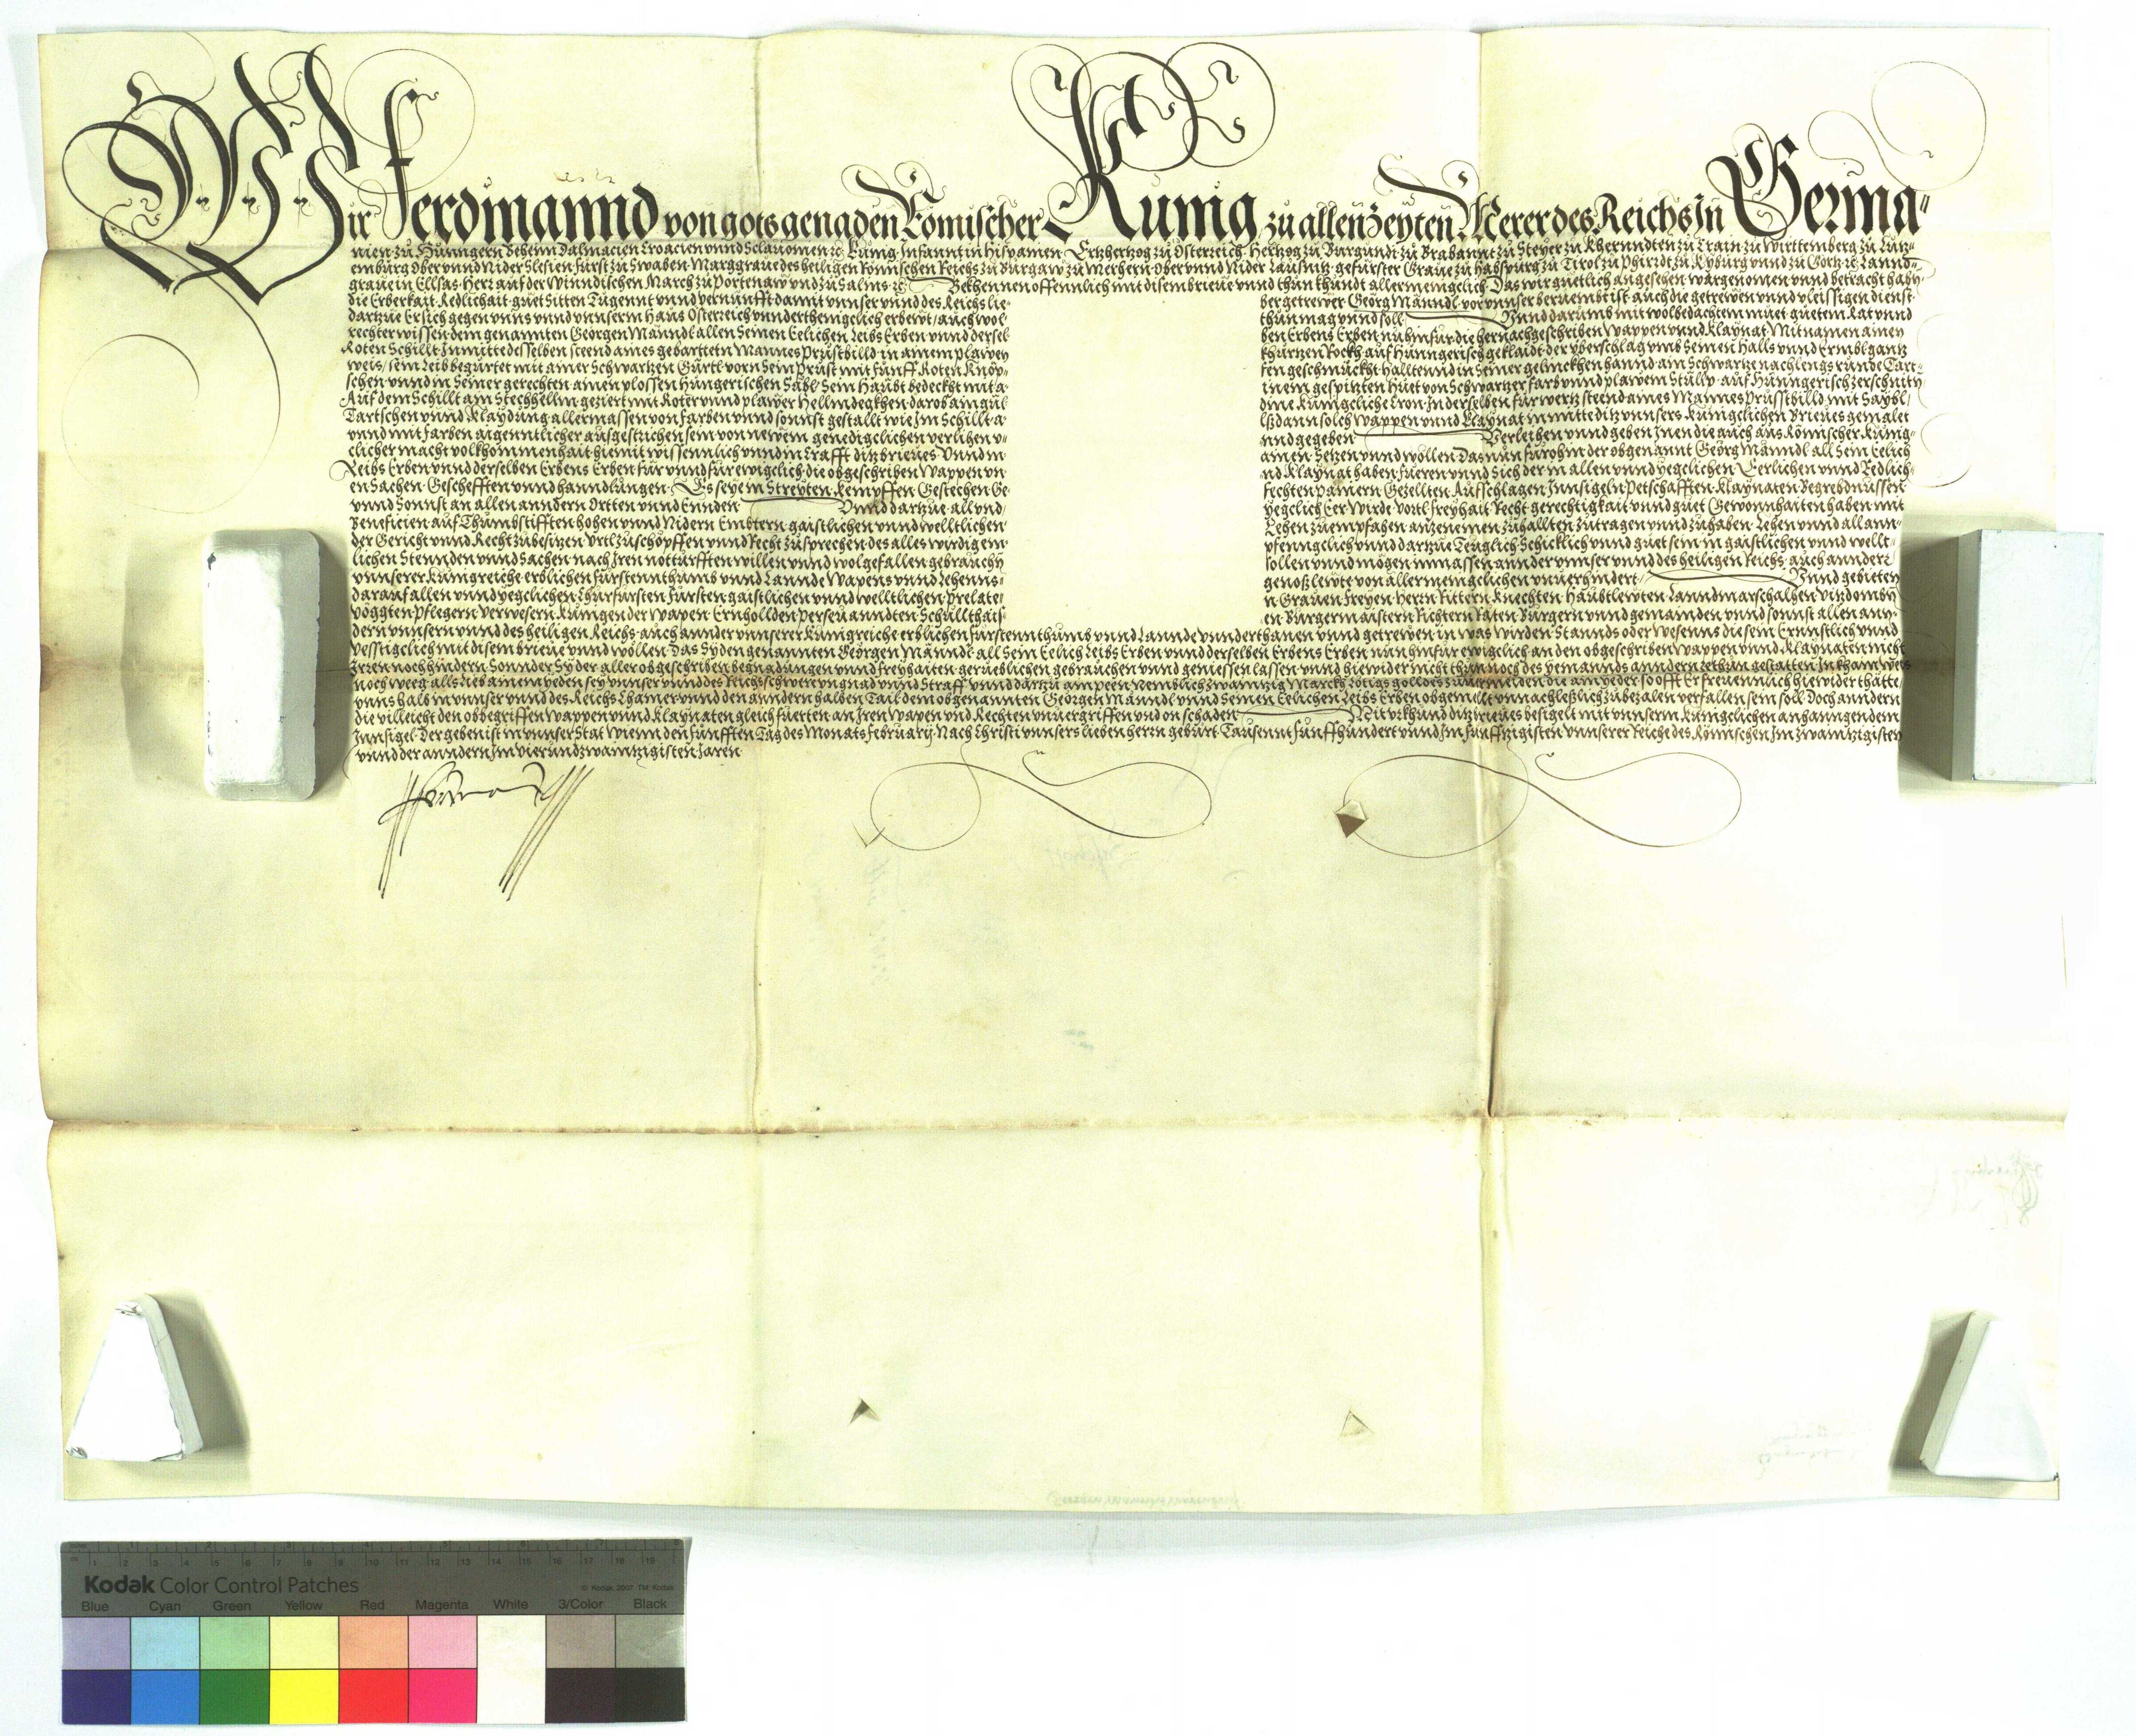 Wir Ferdinannd von gots genaden Römischer Kunig zu allen Zeyten Merer des Reichs In Germa-
nien zu Hunngern Behem Dalmacien Croacien vnnd Sclauonien ꝛc Kunig Infannt in Hispanien Ertzhertzog zu Osterreich Hertzog zu Burgundi zu Brabannt zu Steyer zu Khernndten zu Crain zu Wirttemberg zu Lutz-
emburg Ober vnnd Nider Slesien Furst zu Swaben Marggraue des heiligen Römischen Reichs zu Burgaw zu Merhern Ober vnnd Nider Lausnitz gefurster Graue zu Habspurg zu Tirol zu Phirdt zu Kyburg vnnd zu Gortz ꝛc Lannd-
graue in Ellsas Herr auf der Winndischen March zu Portenaw vnd zu Salins ꝛc Bekhennen offennlich mit disem brieue vnnd thun khundt allermenigclich Das wir guetlich angesehen wargenomen vnnd betracht haben
die Erberkait Redlichait guet Sitten Tugennt vnnd vernunfft damit vnnser vnnd des Reichs lie- ber getrewer Georg Männdl vor vnnser beruembt ist auch die getrewen vnnd vleissigen dienst
dartzue Er sich gegen vnns vnnd vnnserm Haus Osterreich vnnderthenigclich erbewt / auch wol thun mag vnnd soll Vnnd darumb mit wolbedachtem muet guetem Rat vnnd
rechter wissen dem genannten Georgen Männdl allen Seinen Eelichen Leibs Erben vnnd dersel- ben Erbens Erben nu hinfur die hernachgeschriben Wappen vnnd Klaynat Mit namen ainen
Roten Schillt In mitte desselben steend aines gebartteten Mannes Prustbilld in ainem plawen khurtzen Rockh auf Hunngerisch geklaidt der vberschlag vmb Seinen Halls vnnd Ermbl gantz
weis / sein Leib begurtet mit ainer Schwartzen Gurtl vorn Sein Prust mit funff Roten Knöp- fen geschmuckht Halltennd in Seiner gelinckhen hannd ain Schwartze nach lengs runde Tart-
schen vnnd in Seiner gerechten ainen plossen Hungerischen Säbl Sein Haubt bedeckht mit a- inem gespitzten Huet von Schwartzer farb vnnd plawem Stulp auf Hunngerisch zerschnitn
Auf dem Schillt ain Stechhellm geziert mit Roter vnnd plawer Hellmdegkhen darob ain gul- dine Kunigcliche Cron In derselben furwertz steend aines Mannes Prusstbilld mit Säybl /
Tartschen vnnd Klaydung allermassen von farben vnnd sonnst gestallt wie Im Schillt a- lßdann solch Wappen vnnd Klaynat in mitte ditz vnnsers Kunigclichen Brieues gemalet
vnnd mit farben aigenntlicher ausgestrichen sein von newem genedigclichen verlihen v- nnd gegeben Verleihen vnnd geben Inen die auch aus Römischer Kunig-
clicher macht volkhomenhait hiemit wissennlich vnnd in Crafft ditz brieues Vnnd m- ainen Setzen vnnd wöllen Das nun furohin der obgenannt Georg Männdl all Sein Eelich
Leibs Erben vnnd derselben Erbens Erben fur vnnd fur ewigclich die obgeschriben Wappen vn- nd Klaynat haben fueren vnnd Sich der in allen vnnd yegclichen Eerlichen vnnd Redlich-
en Sachen Geschefften vnnd hanndlungen Es sey in Streyten Kempffen Gestechen Ge- fechten Panirn Gezellten Aufschlagen Innsigeln Petschafften Klaynaten Begrebdnussen
vnnd Sonnst an allen anndern Ortten vnnd Ennden Vnnd dartzue all vnd / yegclich Eer Wirde vortl freyhait Recht gerechtigkait vnnd guet Gewonnhaiten haben mit
Beneficien auf Thumbstifften hohen vnnd Nidern Embtern gaistlichen vnnd welltlichen Lehen zu empfahen antzenemen zu hallten zu tragen vnnd zu haben Lehen vnnd all ann-
der Gericht vnnd Recht zu besitzen Vrtl zu schöpffen vnnd Recht zu sprechen des alles wirdig em- pfenngclich vnnd dartzue Teuglich Schicklich vnnd guet sein in gaistlichen vnnd wellt-
lichen Stennden vnnd Sachen nach Iren notturfften willen vnnd wolgefallen gebrauchn sollen vnnd mögen inmassen annder vnnser vnnd des heiligen Reichs auch anndere
vnnserer Kunigreiche erblichen Furstennthumb vnnd Lannde Wapens vnnd Lehenns- genoß lewte von allermenigclichen vnuerhindert Vnnd gebieten
darauf allen vnnd yegclichen Churfursten Fursten gaistlichen vnnd welltlichen Prelate- n Grauen Freyen Herrn Rittern Knechten Haubtlewten Lanndmarschalhen Vitzdombn
Vöggten Pflegern Verwesern Kunigen der Wapen Ernhollden Perseuanndten Schullthais- en Burgermaistern Richtern Räten Burgern vnnd gemainden vnnd sonnst allen ann-
dern vnnsern vnnd des heiligen Reichs auch annder vnnserer Kunigreiche erblichen furstennthumb vnnd Lannde vnnderthanen vnnd getrewen in was Wirden Stannds oder Wesenns die sein Ernnstlich vnnd
vesstigclich mit disem brieue vnnd wöllen Das Sy den genannten Georgen Männdl all Sein Eelich Leibs Erben vnnd derselben Erbens Erben nun hinfur ewigclich an den obgeschriben Wappen vnnd Klaynaten nicht
Irren noch hindern Sonnder Sy der aller obgeschriben begnadungen vnnd Freyhaiten geruebLichen gebrauchen vnnd geniessen lassen vnnd hiewider nicht thun noch des yemannds anndern zethun gestatten In khain weis
noch weeg alls lieb ainem yeden sey vnnser vnnd des Reichs schwere vngnad vnnd Straff vnnd dartzu ain peen Nemblich zwaintzig Marckh Lötigs golldes zuuermeiden die ain yeder so offt Er freuennlich hiewider thätte /
vnns halb in vnnser vnnd des Reichs Chamer vnnd den anndern halben Tail dem obgenannten Georgen Männdl vnnd Seinen Eelichen Leibs Erben obgemellt vnnachleßlich zubezalen verfallen sein soll Doch anndern
die villeicht den obbegriffen Wappen vnnd Klaynaten gleich fuerten an Iren Wapen vnd Rechten vnuergriffen vnd on schaden Mit vrkhund ditz brieues besigelt mit vnnserm Kunigclichen anhanngendem
Innsigel Der geben ist in vnnser Stat Wienn den funfften Tag des Monats February Nach Christi vnnsers lieben herrn geburt Tausennt funffhundert vnnd Im funffzigisten vnnserer Reiche des Römischen Im zwaintzigisten
vnnd der anndern Im vierundzwaintzigisten Jaren
Ferdinand
Kodak Color Control Patches
© Kodak, 2007 TM: Kodak
Blue Cyan Green Yellow Red Magenta White 3/Color Black